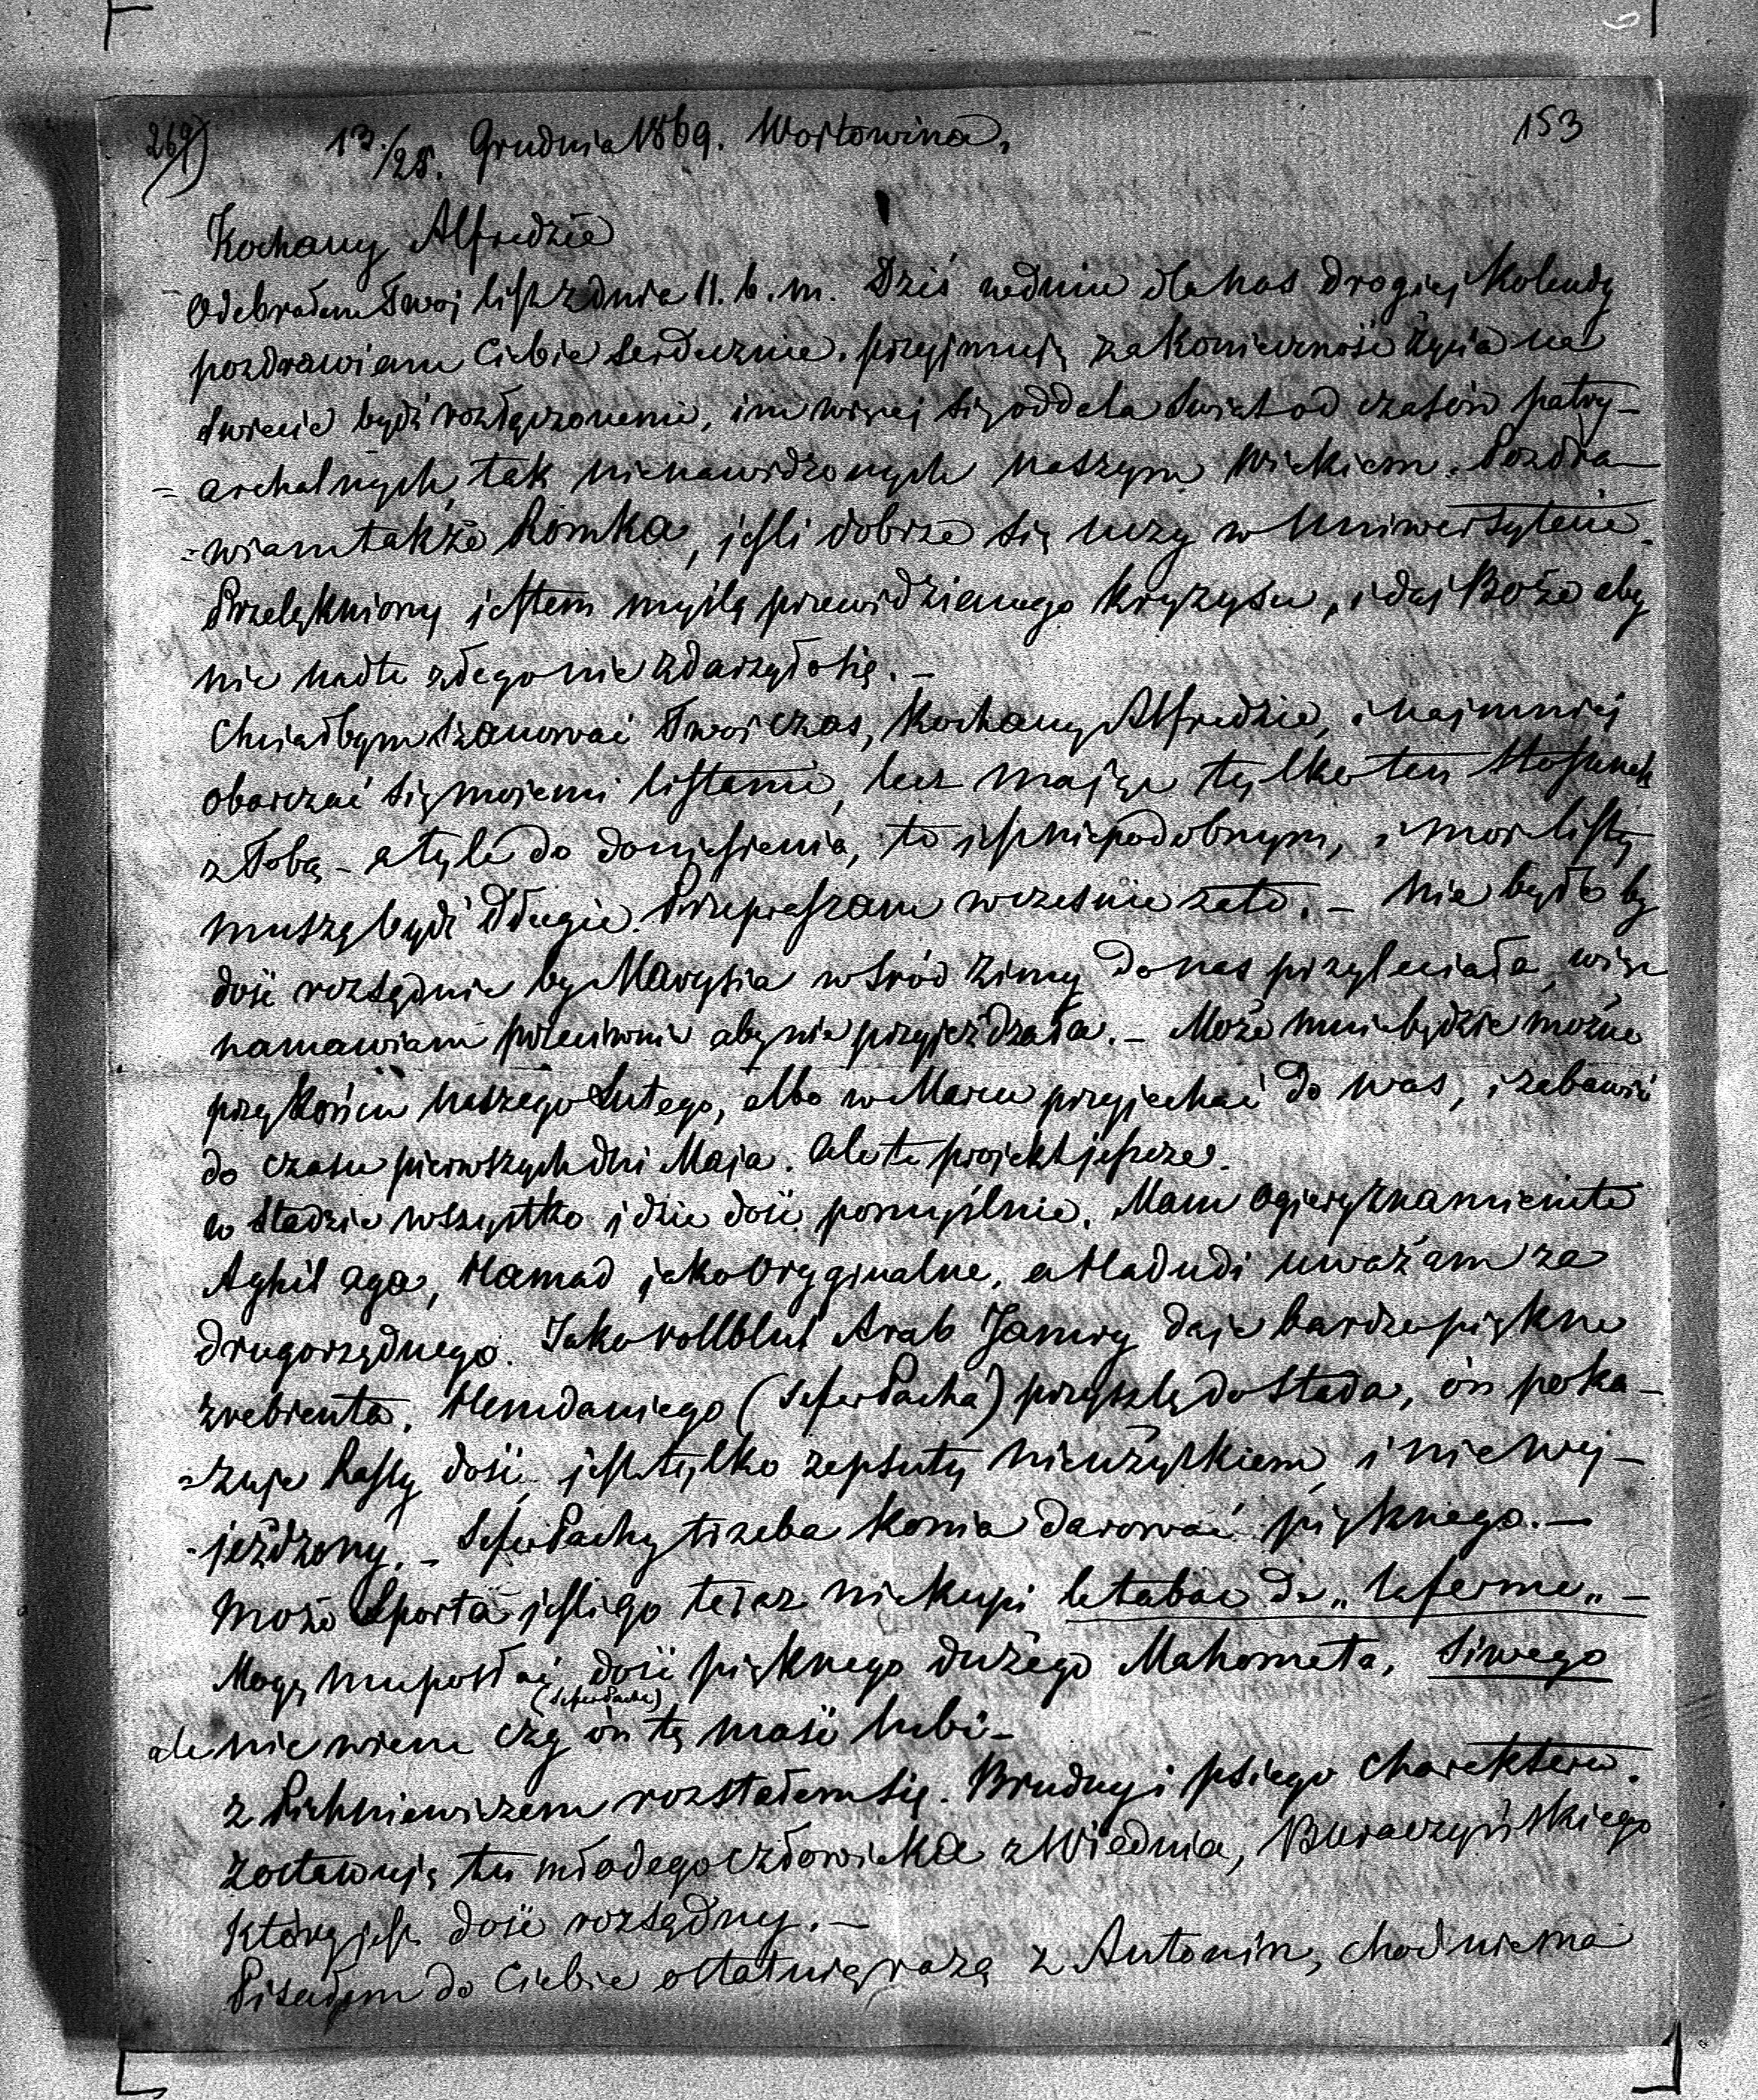 269) 13./25. Grudnia 1869. Wołtowina. 153
Kochany Alfredzie
Odebrałem Twoj list z dnia 11. b. m. Dziś w dniu dla nas drogiej Kolendy
pozdrawiam Ciebie serdecznie. przyjmuję za Konieczność życia na
świecie bydź rozłączonemi, im więcej się oddala świat od czasów patry-
= archalnych, tak nienawidzonych naszym wiekiem. Pozdra-
= wiam także Romka, jeśli dobrze się uczy w Uniwersytecie.
Przelękniony jestem myślą przewidzianego kryzysu, i daj Boże aby
nic nadto złego nie zdarzyło się. –
Chciałbym szanować Twoj czas, Kochany Alfredzie, i najmniej
obarczać się mojemi listami, lecz mając tylko ten stosunek
z Tobą – a tyle do doniesienia, to jest niepodobnym, i moje listy
muszą bydź długie. Przepraszam wcześnie za to. – Nie było by
dość rozsądnie by Marysia wśród zimy do nas przyleciała, więc
namawiam przeciwnie aby nie przyjeżdzała. – Może mnie będzie można
przy Końcu naszego Lutego, albo w Marcu przyjechać do was, i zabawić
do czasu pierwszych dni Maja. ale to projekt jeszcze.
w Stadzie wszystko idzie dość pomyślnie. Mam ogiery znamienite
Aghil aga, Hamad jako oryginalne, a Hadudi uważam za
drugorzędnego. Jako vollblut Arab Jamry daje bardzo piękne
zrebienta. Hemdaniego (Sefer Pacha) przyszlę do Stada, on poka-
= zuje Rassy dość, jest tylko zepsuty nieużytkiem, i niewy-
- jeżdzony. – Sefer Pachy trzeba konia darować pięknego. –
Może Sporta jeśli go teraz nie kupi le tabac de „Laferme„ –
Mogę mu posłać dość pięknego dużego Mahometa, Siwego
(Sefer Pacha)
ale nie wiem czy on tę maść lubi –
z Pichniewiczem rozstałem się. Brudny i psiego charakteru.
zostawuję tu młodego człowieka z Wiednia, Buraczyńskiego
który jest dość rozsądny. –
Pisałem do Ciebie ostatnią razą z Antonin, choć niema